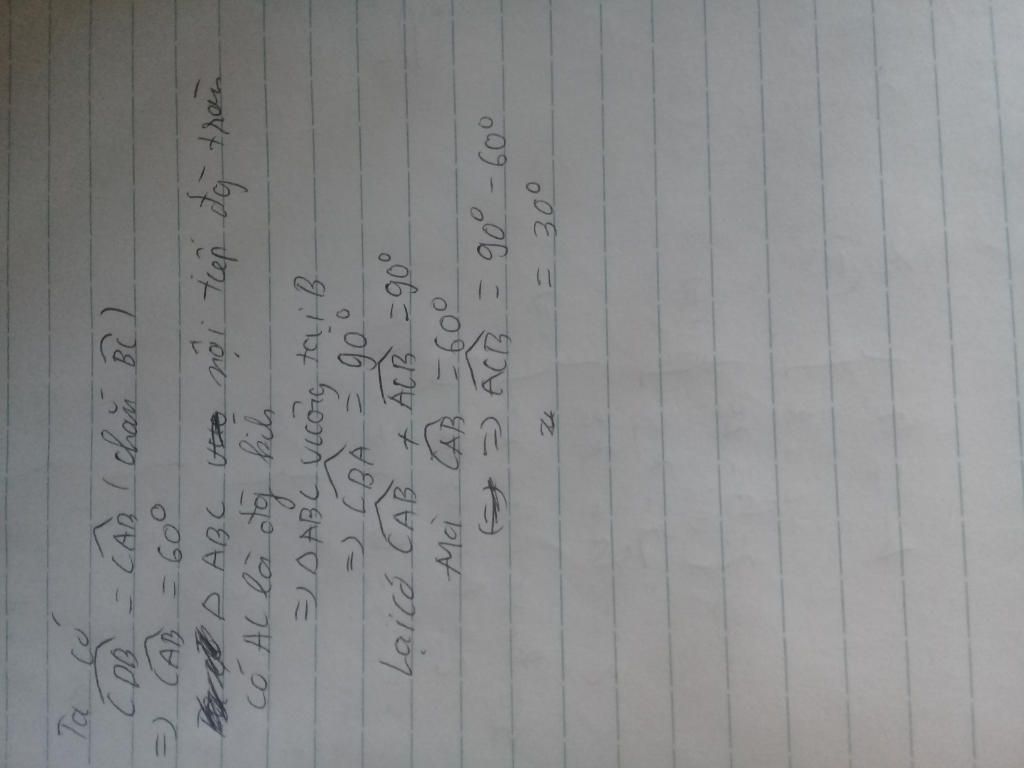 Ta có
CDB = CAB ( chắn BC )
=) CAB = 60°
Δ ABC nội tiếp đg tròn
có AC là đg kính
=) ΔABC vuông tại B
=) CBA = 90°
Lại có CAB + ACB = 90°
Mà CAB = 60°
=) ACB = 90° - 60°
= 30°